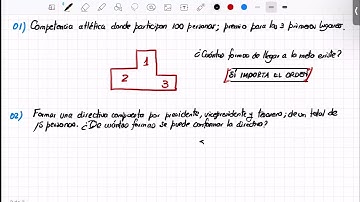 01) Competencia atlética donde participan 100 personas; premio para los 3 primeros lugares.
1
2
3
¿Cuántas formas de llegar a la meta existe?
SÍ IMPORTA EL ORDEN
02) Formar una directiva compuesta por presidente, vicepresidente y tesorero; de un total de
15 personas. ¿De cuántas formas se puede conformar la directiva?